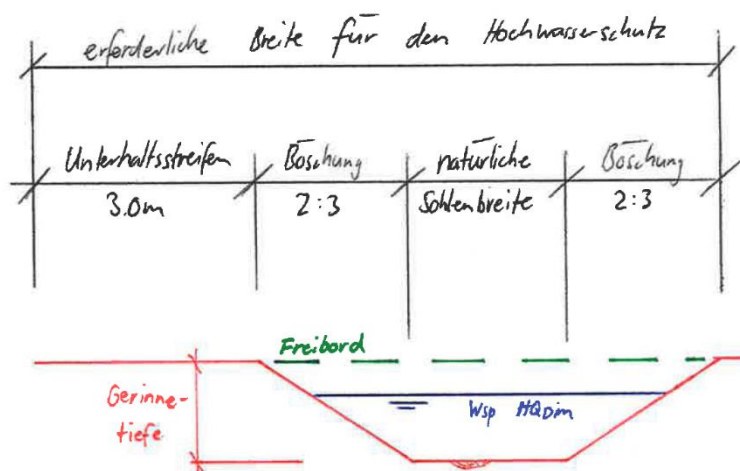 erforderliche Breite für den Hochwasserschutz
Unterhaltsstreifen Böschung natürliche Böschung
3.0m 2:3 Sohlenbreite 2:3
Freibord
Gerinne-
tiefe
Wsp HQDim